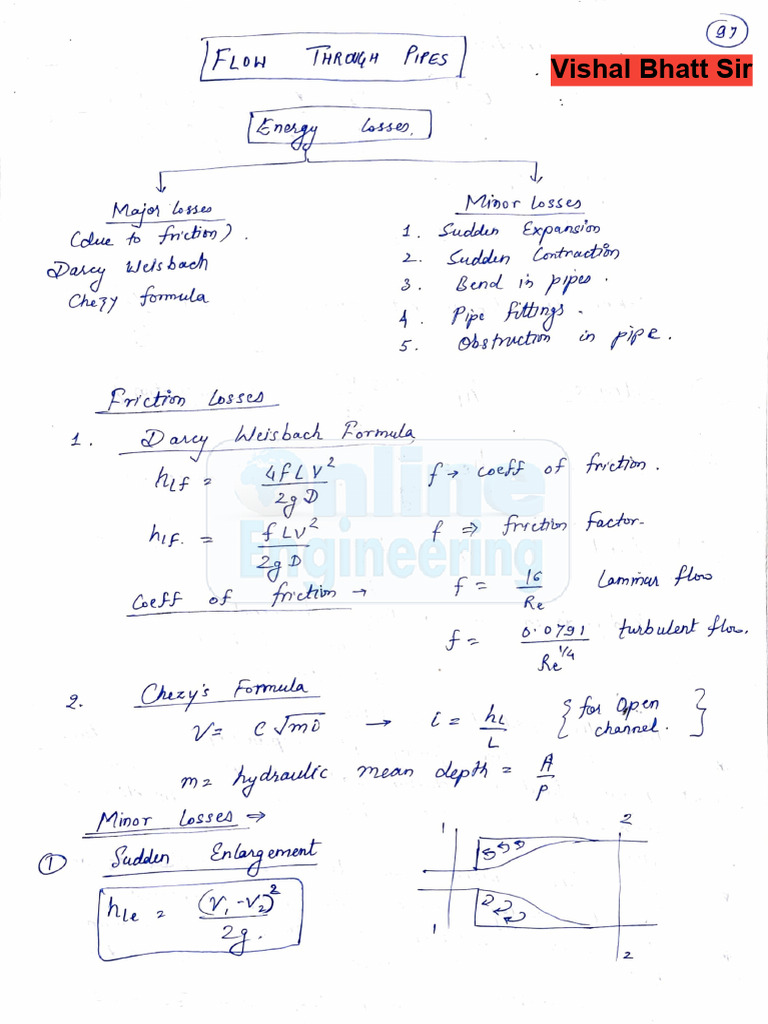 97
FLOW THROUGH PIPES
Vishal Bhatt Sir
Energy Losses.
Major Losses
(due to friction).
Darcy Weisbach
Chezy formula
Minor Losses
1. Sudden Expansion
2. Sudden Contraction
3. Bend in pipes.
4. Pipe fittings.
5. Obstruction in pipe.
Friction Losses
1. Darcy Weisbach Formula
hLf = 4fLV²/2gD f → coeff of friction.
hLf. = fLV²/2gD f ⇒ friction factor.
Coeff of friction → f = 16/Re Laminar flow
f = 0.0791/Re^1/4 turbulent flow.
2. Chezy's Formula
V = C√mi → i = hL/L {for open channel.}
m = hydraulic mean depth = A/P
Minor Losses →
① Sudden Enlargement
hLe = (V₁-V₂)²/2g.
1 2
1 2
Online
Engineering